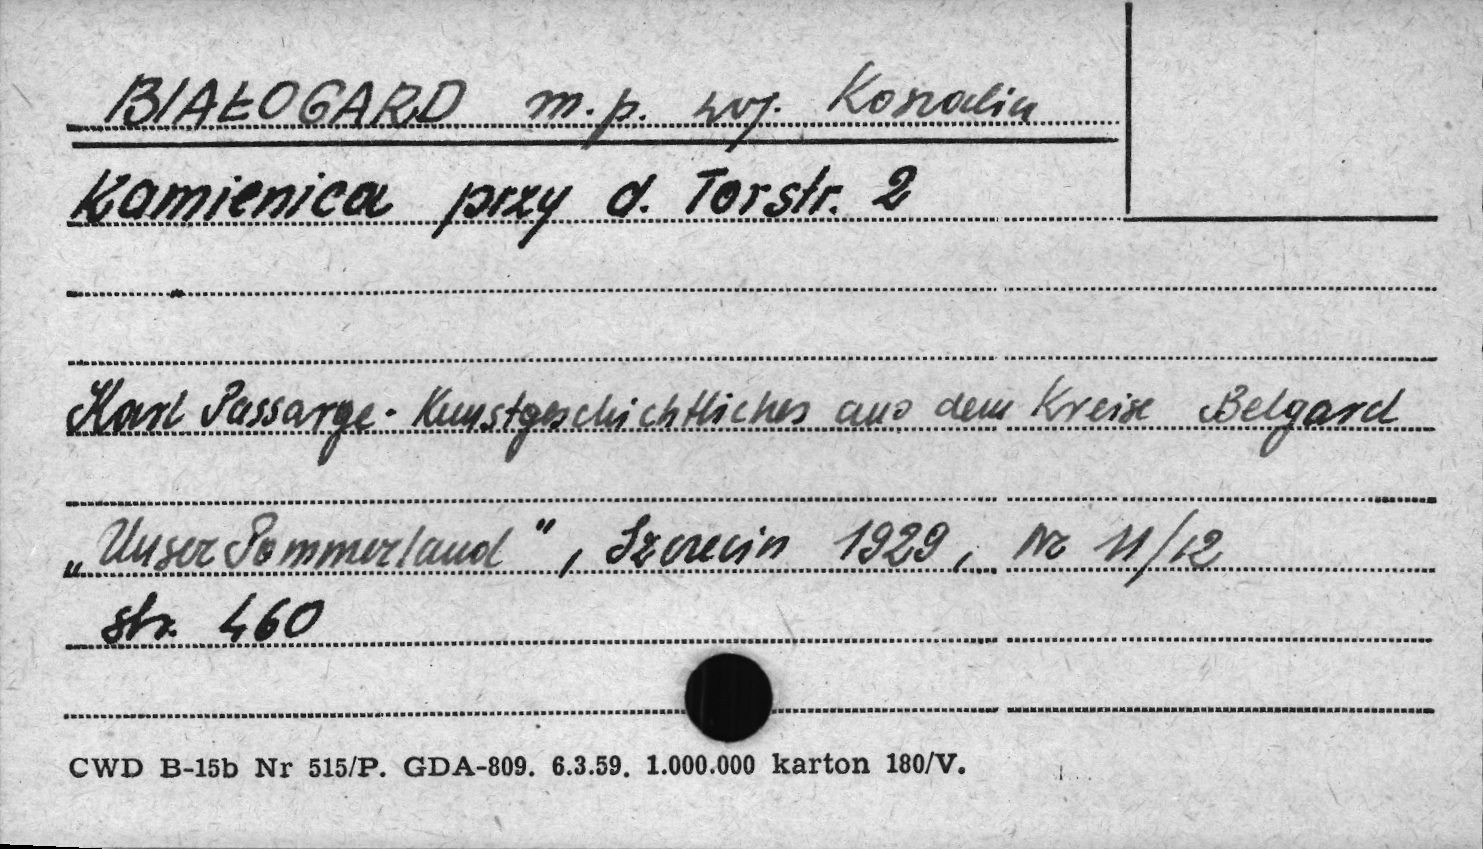 BIAŁOGARD m.p. woj. Koszalin
Kamienica przy d. Torstr. 2
Karl Passarge - Kunstgeschichtliches aus dem Kreise Belgard
„Unser Pommerland", Szczecin 1929, Nr 11/12
str. 460
CWD B-15b Nr 515/P. GDA-809. 6.3.59. 1.000.000 karton 180/V.